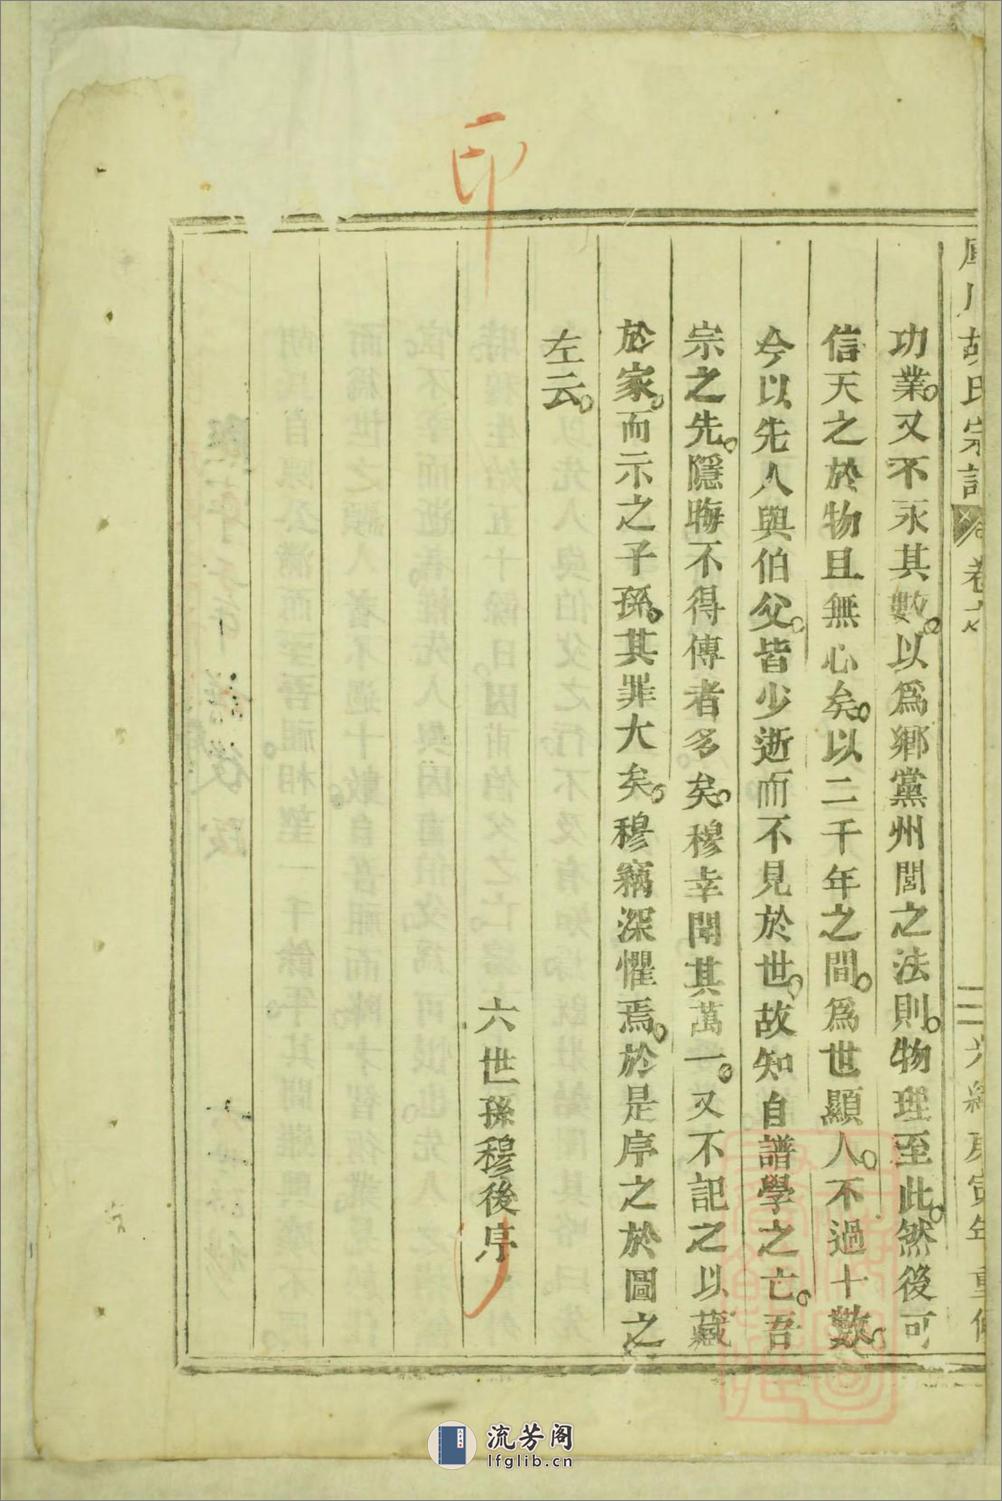 胡氏宗譜 卷 二 光緒庚寅年重修
功業。又不永其數。以爲鄉黨州閭之法則。物理至此。然後可
信天之於物且無心矣。以二千年之間。爲世顯人。不過十數。
今以先人與伯父。皆少逝而不見於世。故知自譜學之亡。吾
宗之先。隱晦不得傳者多矣。穆幸聞其萬一。又不記之以藏
於家。而示之子孫。其罪大矣。穆竊深懼焉。於是序之於圖之
左云。
六世孫穆後序
印
流芳阁
lfglib.cn